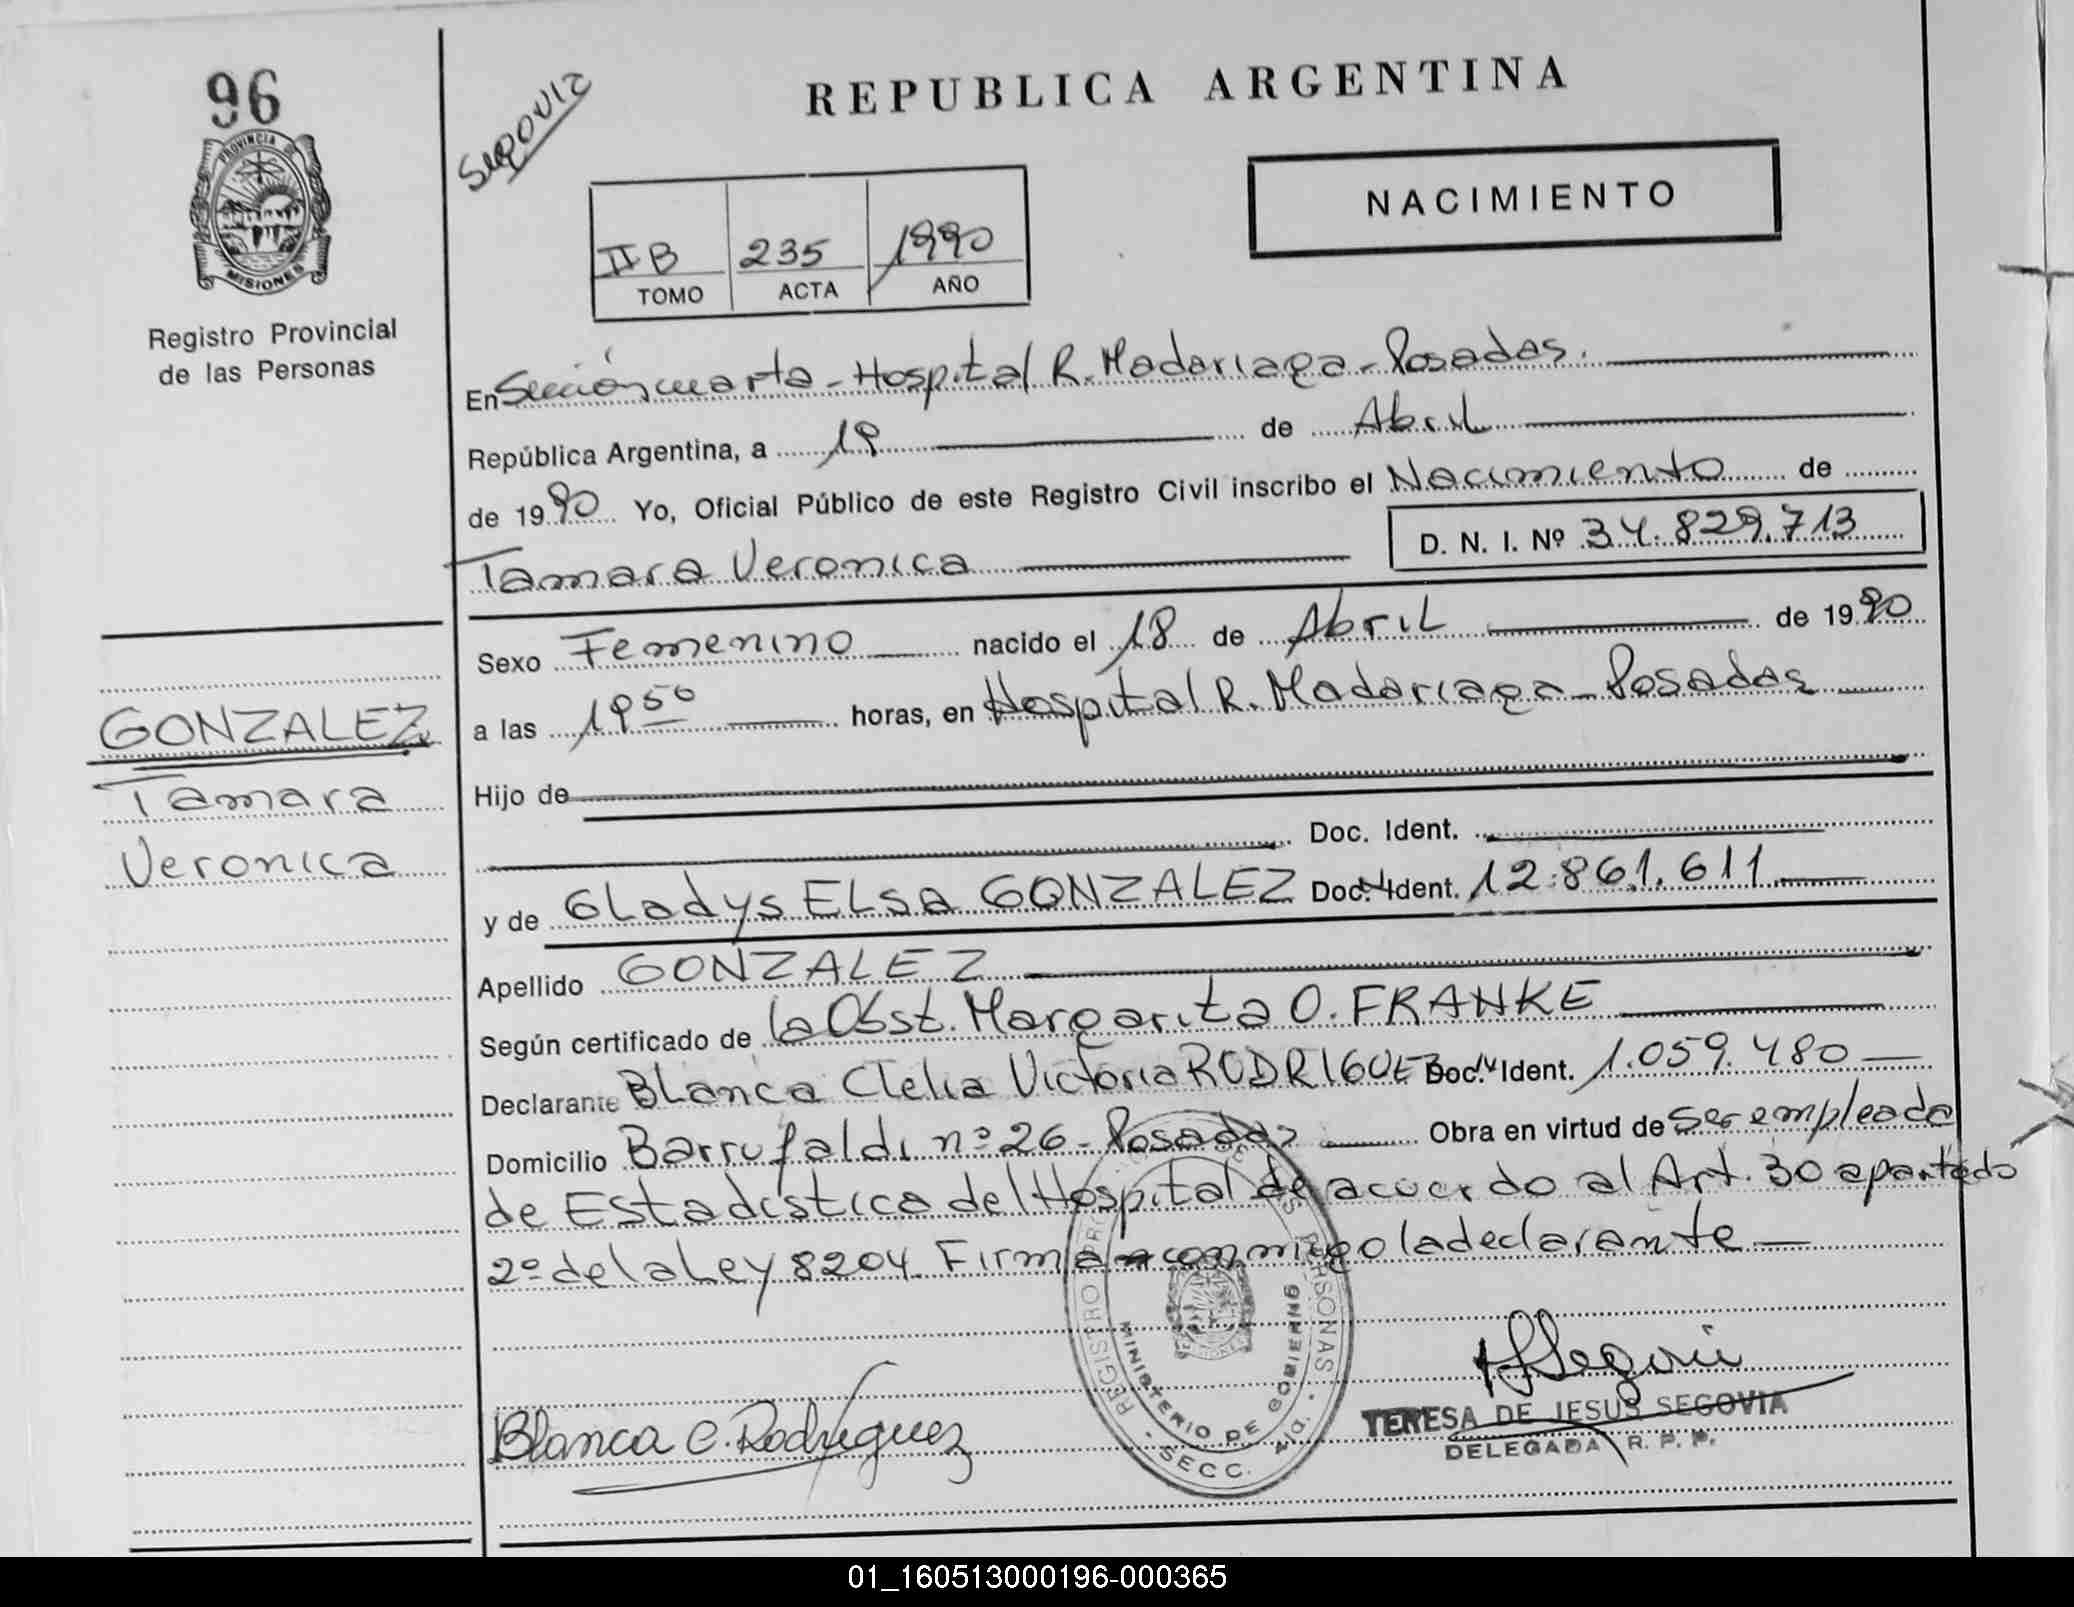 96
PROVINCIA DE
MISIONES
Registro Provincial
de las Personas
Segovia
REPUBLICA ARGENTINA
NACIMIENTO
II B 235 1990
TOMO ACTA AÑO
En Sección cuarta - Hospital R. Madariaga - Posadas.
República Argentina, a 19 de Abril
de 1990 Yo, Oficial Público de este Registro Civil inscribo el Nacimiento de
Tamara Veronica D. N. I. Nº 34.829.713
Sexo Femenino nacido el 18 de Abril de 1990
a las 19 50 horas, en Hospital R. Madariaga - Posadas
GONZALEZ
Tamara
Veronica
Hijo de
Doc. Ident.
y de Gladys ELSA GONZALEZ Doc. Ident. 12.861.611
Apellido GONZALEZ
Según certificado de la Obst. Margarita O. FRANKE
Declarante Blanca Clelia Victoria RODRIGUEZ Doc. Ident. 1.059.480
Domicilio Barrufaldi nº 26 - Posadas Obra en virtud de ser empleada
de Estadística del Hospital de acuerdo al Art. 30 apartado
2º de la Ley 8204. Firma conmigo la declarante
REGISTRO PERSONAS
MINISTERIO DE GOBIERNO
SECC. 4ta.
Blanca C. Rodríguez
TERESA DE JESUS SEGOVIA
DELEGADA R. P. P.
01_160513000196-000365